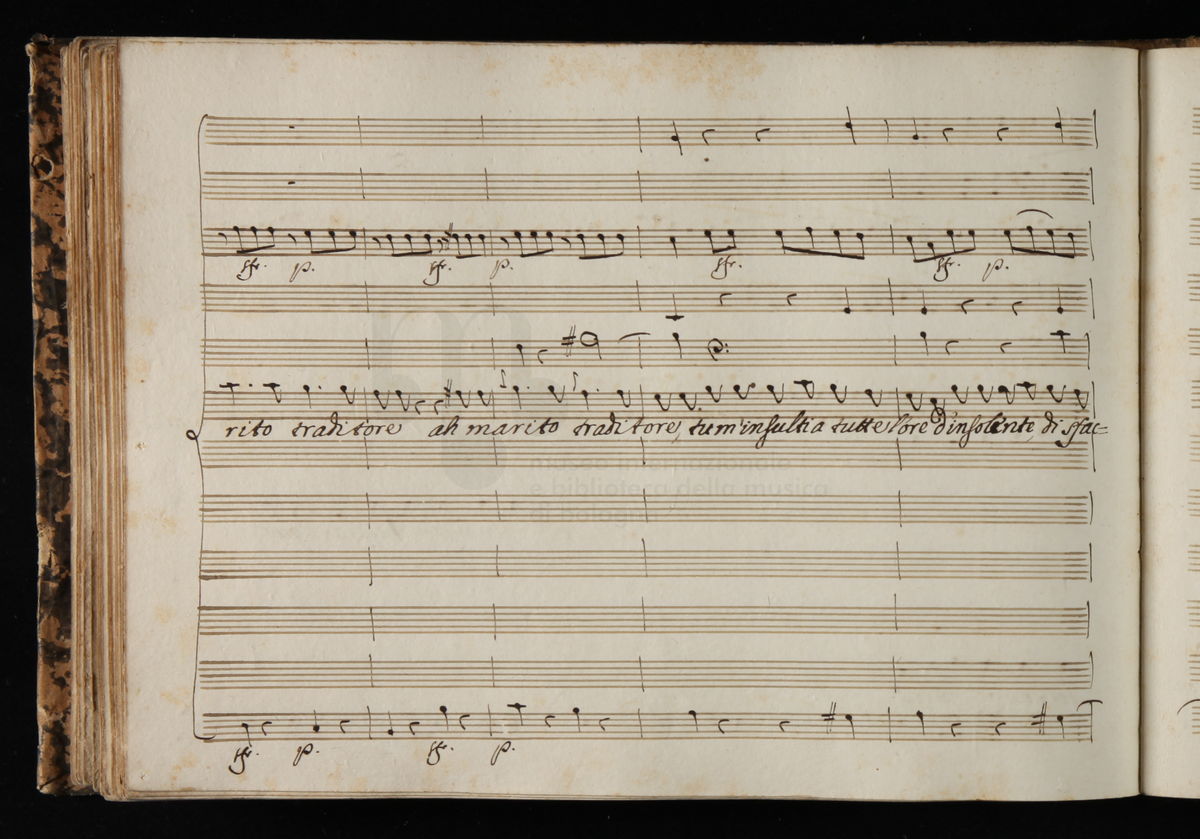 sfr. p. sfr. p. sfr. sfr. p.
rito traditore ah marito traditore, tu m'insulti a tutte l'ore d'insolente, di sfac=
museo internazionale
e biblioteca della musica
di bologna
sfr. p. sfr. p.